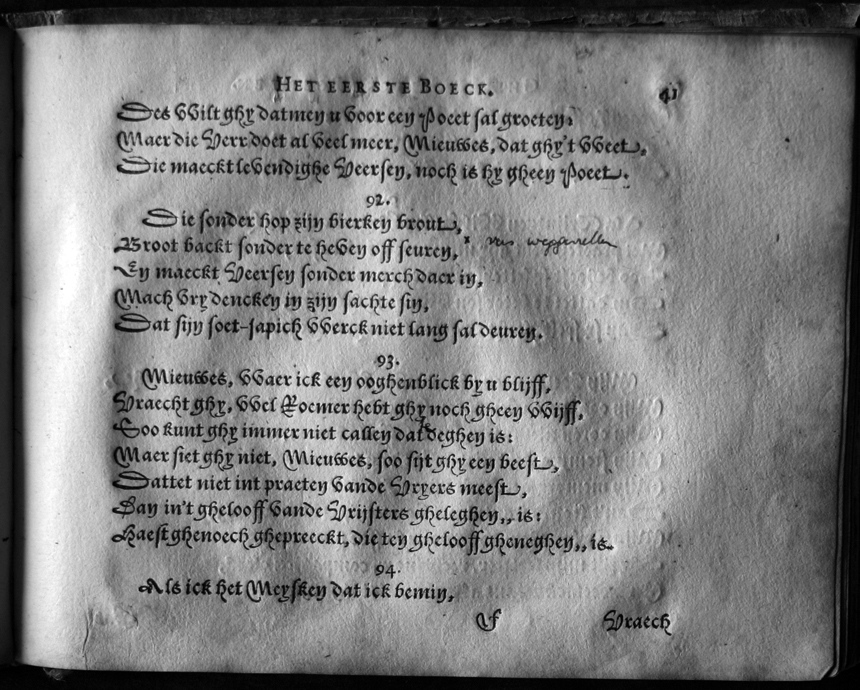 HET EERSTE BOECK. 41
Des VVilt ghy datmen u voor een Poeet sal groeten:
Maer die Verr doet al veel meer, Mieuwes, dat ghy't VVeet,
Die maeckt levendighe Veersen, noch is hy gheen Poeet.
92.
Die sonder hop zijn bierken brout,
Broot backt sonder te heven off seuren,
En maeckt Veersen sonder merch daer in,
Mach vry dencken in zijn sachte sin,
Dat sijn soet-sapich VVerck niet lang sal deuren.
93.
Mieuwes, VVaer ick een ooghenblick by u blijff,
Vraecht ghy, VVel Roemer hebt ghy noch gheen VVijff,
Soo kunt ghy immer niet callen dat deghen is:
Maer siet ghy niet, Mieuwes, soo sijt ghy een beest,
Dattet niet int praeten vande Vryers meest,
Dan in't ghelooff vande Vrijsters gheleghen,, is:
Haest ghenoech ghepreeckt, die ten ghelooff gheneghen,, is.
94.
Als ick het Meysken dat ick bemin,
f Vraech